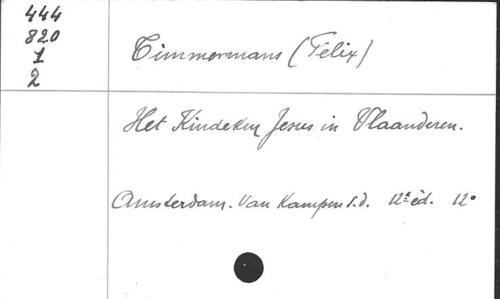 444
820
1
2
Timmermans (Félix)
Het Kindeken Jesus in Vlaanderen.
Amsterdam. Van Kampen s.d. 12e éd. 12°